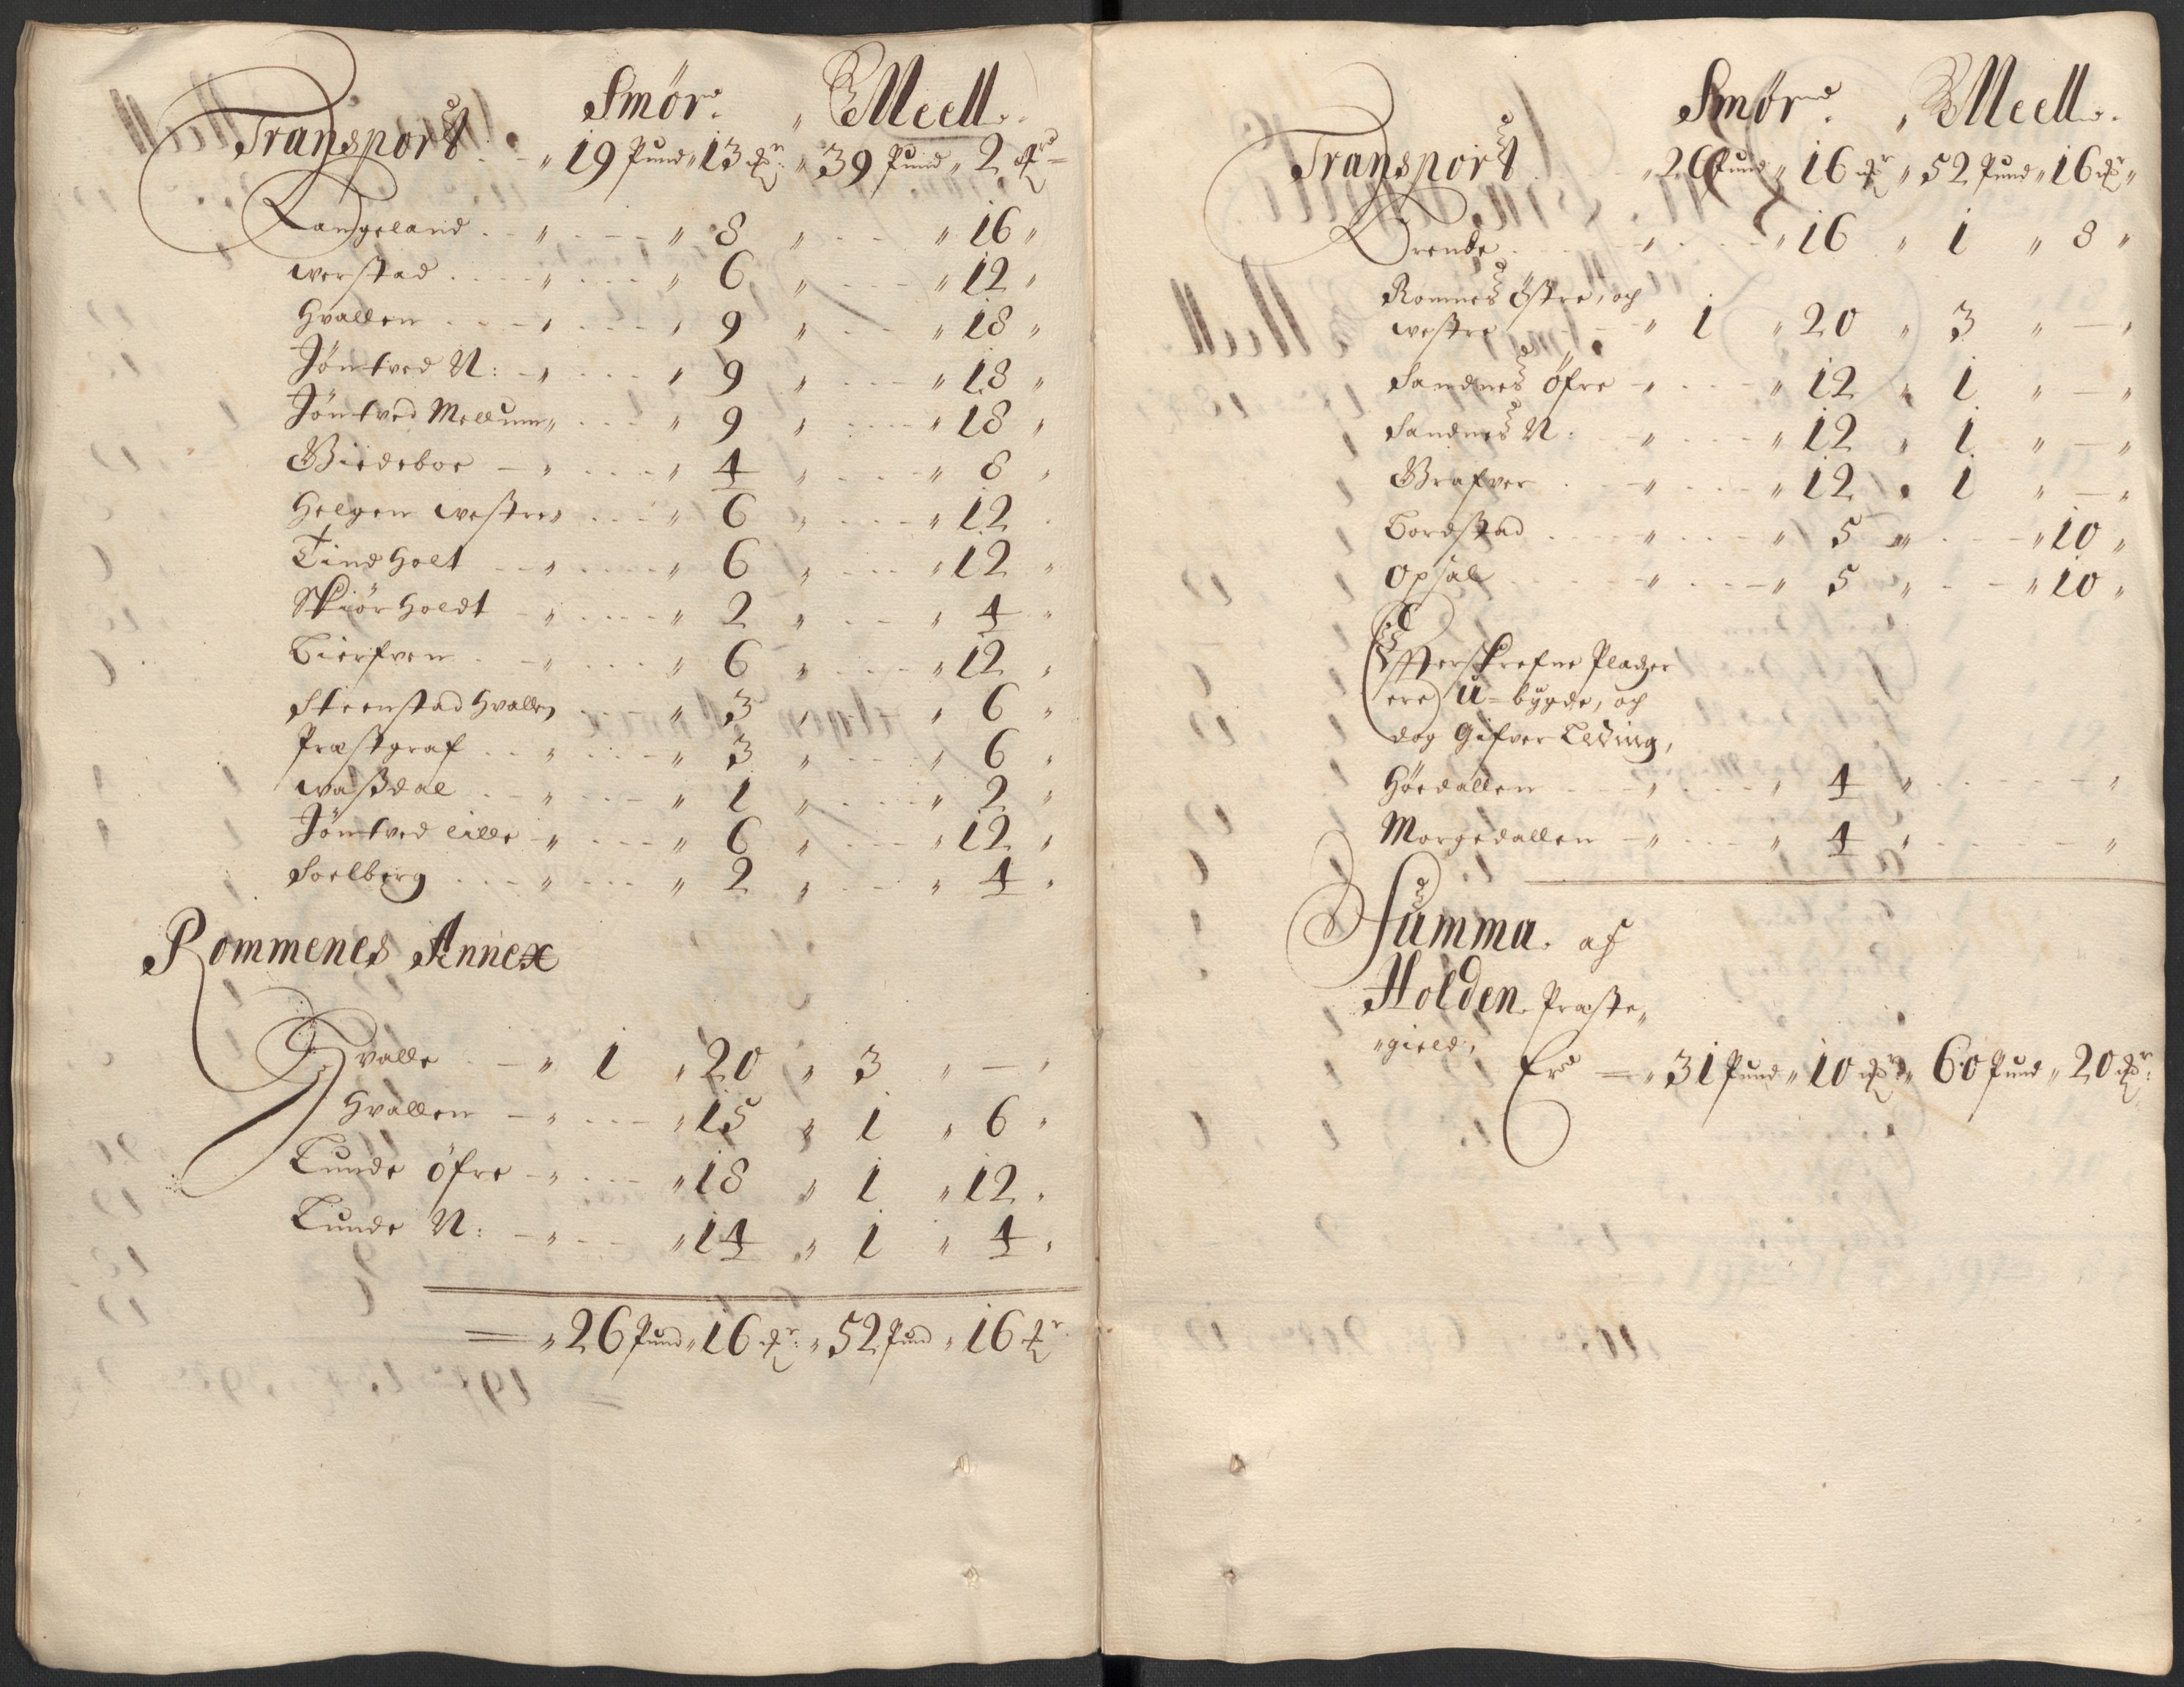 Smør. " Meell.
Transport. " 19 Pund " 13 ℔r: " 39 Pund " 2 ℔r
Langeland . - " . - - - " 8 " . . - " 16 "
Werstad . . . . - " . - - - " 6 " . . - - " 12 "
Hvallen . . - - " . - - - " 9 " . . - " 18 "
Jöntved N: - " . . . . " 9 " . . - - " 18 "
Jöntved Mellum " . . . " 9 " . . . - " 18 "
Biedeboe - " . . . - " 4 " . . - " 8 "
Helgen westre " . . . - " 6 " . . . - " 12 "
Tindholt - - " . . . - " 6 " . - - - " 12 "
Skiörholdt - " . - - - " 2 " . . - " 4 "
Bierfven . - " . . . - " 6 " . . . - " 12 "
Steenstad Hvalle " . . - " 3 " " 6 "
Præstgraf . . - " . - - - " 3 " . . - " 6 "
Wassdal . . - " . . - - " 1 " . . . - " 2 "
Jöntved lille - " . - - - " 6 " . . - " 12 "
Soelberg . . . - " . . . " 2 " . . - " 4 "
Rommenes Annex
Hvalle . - " 1 " 20 " 3 " - "
Hvallen - " . - - - " 15 " 1 " 6 "
Lunde öfre - " . . - - " 18 " 1 " 12 "
Lunde N: - " . - - " 14 " 1 " 4 "
= " 26 Pund " 16 ℔r: " 52 Pund " 16 ℔r
Smør. " Meell.
Transport . " 26 Pund " 16 ℔r " 52 Pund " 16 ℔r "
" 16 " 1 " 8 "
Romnes östre, och
westre - - " 1 " 20 " 3 " - "
Sandnes öfre - " . . . " 12 " 1 " - "
Sandnes N . . - " . . . - " 12 " 1 " - "
Grafver . . - " . . . - " 12 " 1 " - "
Bordstad . . . . " . . . - " 5 " . . - " 10 "
Opsal . . . . - " . . . - " 5 " . . - " 10 "
Effterskrefne Pladzer
ere U-bygde, och
dog Gifver Leding,
Hördallen . - - " . . . - " 4 " . . . . - "
Morgedallen - " . . . " 4 " . . . . - "
Summa. af
Holden Præste„
„gield,
Er = " 31 Pund " 10 ℔r " 60 Pund " 20 ℔r: